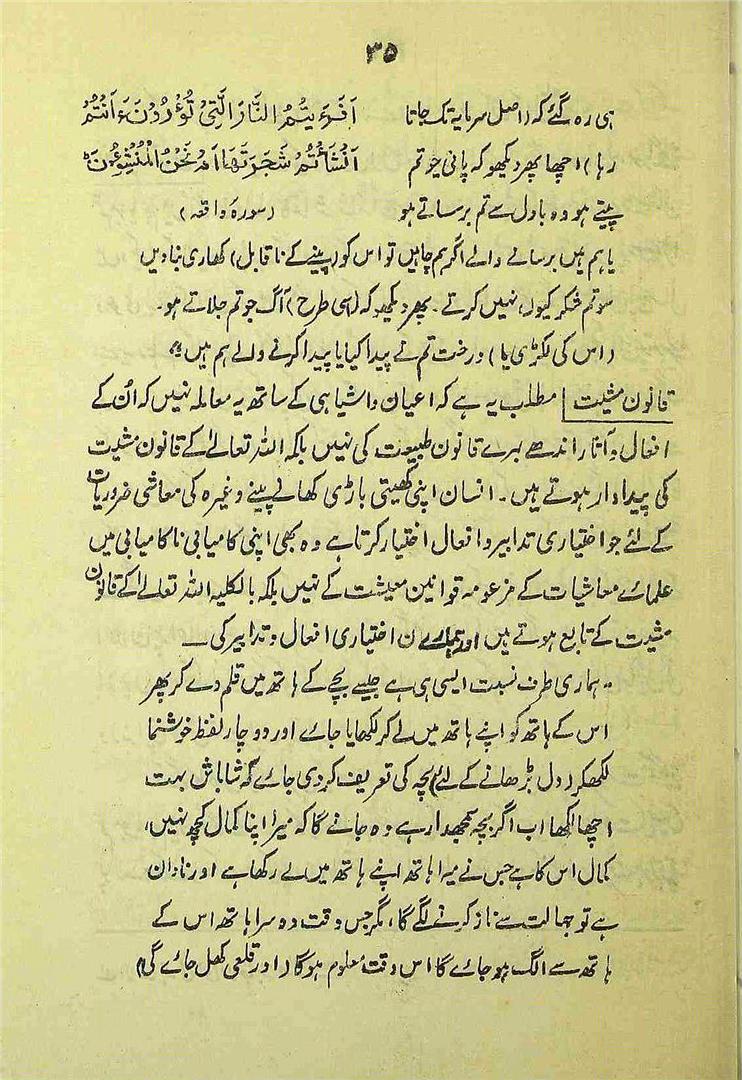 ۳۵
ہی رہ گئے کہ (اصل سرمایہ تک جاتا
اَفَرَءَيْتُمُ النَّارَ الَّتِیْ تُوْرُدُنَ ءَاَنْتُمْ
رہا) اچھا پھر دیکھو کہ پانی جو تم
اَنْشَاْتُمْ شَجَرَتَهَا اَمْ نَحْنُ الْمُنْشِئُوْنَ ؕ
پیتے ہو وہ بادل سے تم برساتے ہو
(سورہ واقعہ)
یا ہم ہیں برسانے والے اگر ہم چاہیں تو اس کو (پینے کے ناقابل) کھاری بنا دیں
سو تم شکر کیوں نہیں کرتے۔ پھر دیکھو کہ (اسی طرح) آگ جو تم جلاتے ہو۔
(اس کی لکڑی یا) درخت تم نے پیدا کیا یا پیدا کرنے والے ہم ہیں"
قانون مشیت | مطلب یہ ہے کہ اعیان و اشیا ہی کے ساتھ یہ معاملہ نہیں کہ اُن کے
افعال و آثار اندھے بہرے قانون طبیعت کی نہیں بلکہ اللہ تعالےٰ کے قانون مشیت
کی پیداوار ہوتے ہیں۔ انسان اپنی کھیتی باڑی کھانے پینے وغیرہ کی معاشی ضروریات
کے لئے جو اختیاری تدابیر و افعال اختیار کرتا ہے وہ بھی اپنی کامیابی ناکامیابی میں
علمائے معاشیات کے مزعومہ قوانین معیشت کے نہیں بلکہ بالکلیہ اللہ تعالےٰ کے قانون
مشیت کے تابع ہوتے ہیں اور ہمارے ان اختیاری افعال و تدابیر کی ــ
"ہماری طرف نسبت ایسی ہی ہے جیسے بچے کے ہاتھ میں قلم دے کر پھر
اس کے ہاتھ کو اپنے ہاتھ میں لے کر لکھایا جائے اور دو چار لفظ خوشنما
لکھکر (دل بڑھانے کے لئے) بچہ کی تعریف کر دی جائے کہ شاباش بہت
اچھا لکھا اب اگر بچہ سمجھدار ہے وہ جانے گا کہ میرا اپنا کمال کچھ نہیں،
کمال اس کا ہے جس نے میرا ہاتھ اپنے ہاتھ میں لے رکھا ہے اور نادان
ہے تو جہالت سے ناز کرنے لگے گا، مگر جس وقت دوسرا ہاتھ اس کے
ہاتھ سے الگ ہو جائے گا اس وقت معلوم ہوگا (اور قلعی کھل جائے گی)"